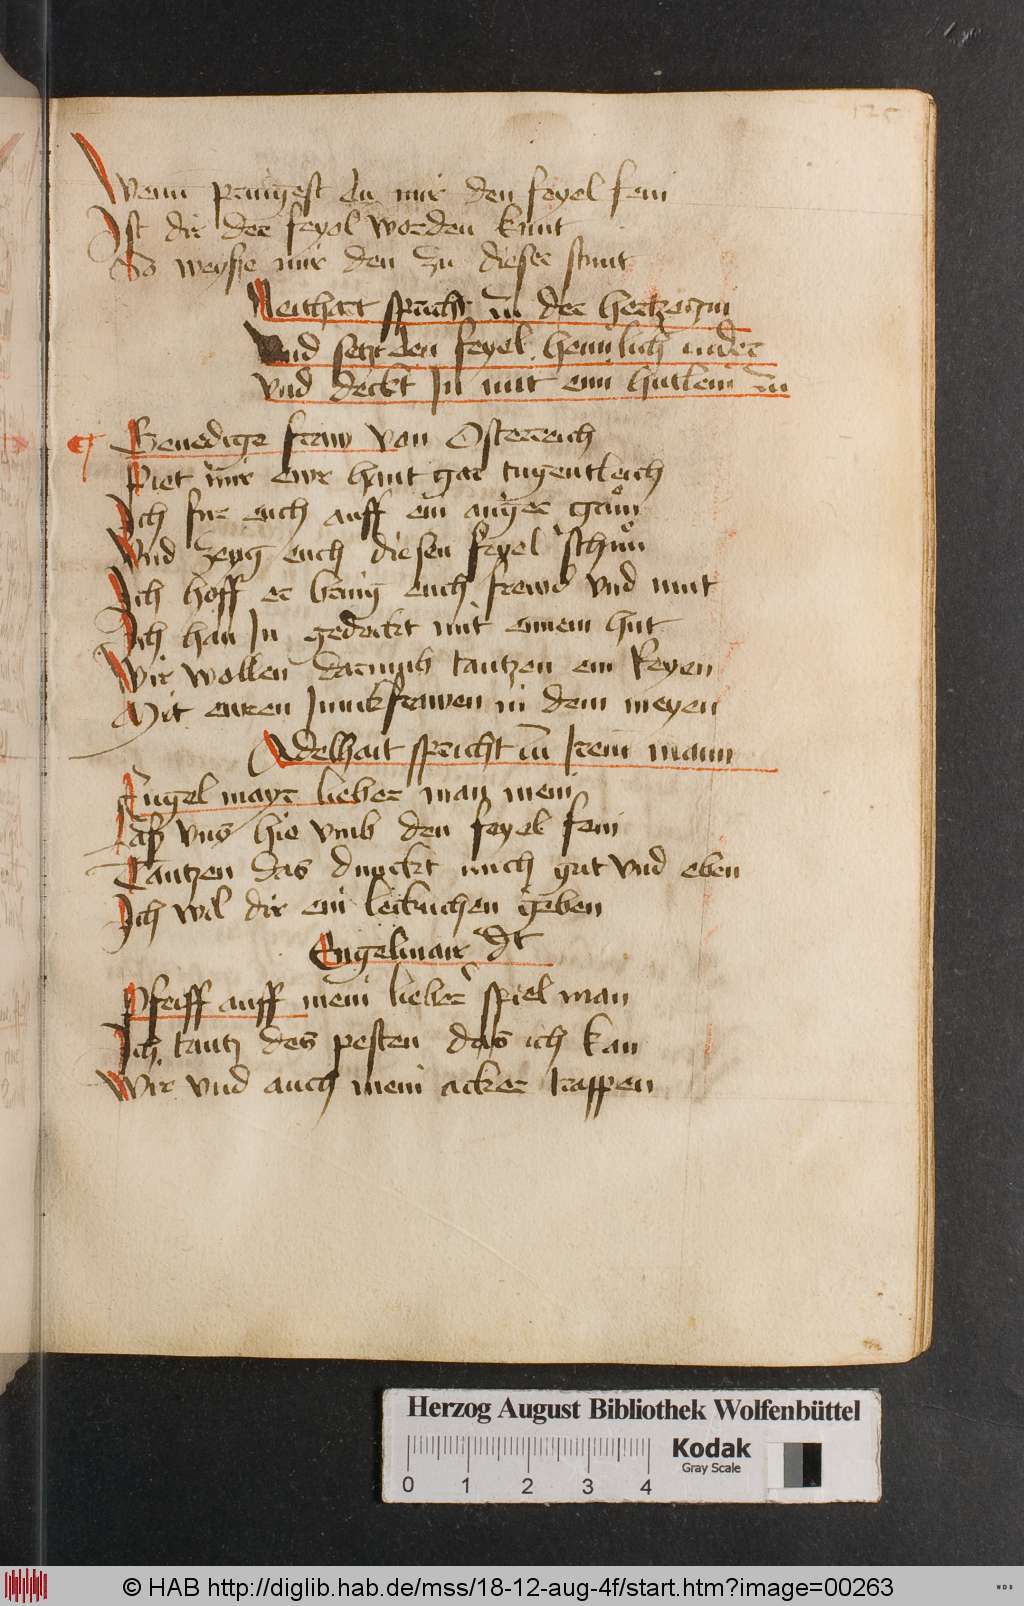 Wenn pringest du mir den feyel fein
Ist dir der feyol worden kunt
So weyse mir den zu dieser stunt
Neithart spricht zu der hertzogin
Vnd setzt den feyel heimlich nider
vnd deckt In mit eim hutlein zu
Genedige fraw von Osterreich
Piet mir ewr hant gar tugentleich
Ich fur euch auff ein anger grůn
Vnd zeyg euch diesen feyel schůn
Ich hoff er bring euch frewd vnd mut
Ich han In gedeckt mit einem hut
Wir wollen darumb tantzen ein Reyen
Mit ewren Junckfrawen in dem meyen
Adelhait spricht zu Irem mann
Engel mayr lieber man mein
Laß vns hie vmb den feyel fein
Tantzen das dunckt mich gut vnd eben
Ich wil dir ein leikuchen geben
Engelmair dt
Pfeiff auff mein lieber spiel man
Ich tantz des pesten das ich kan
Wir vnd auch mein acker trappen
Herzog August Bibliothek Wolfenbüttel
0 1 2 3 4
Kodak
Gray Scale
© HAB http://diglib.hab.de/mss/18-12-aug-4f/start.htm?image=00263